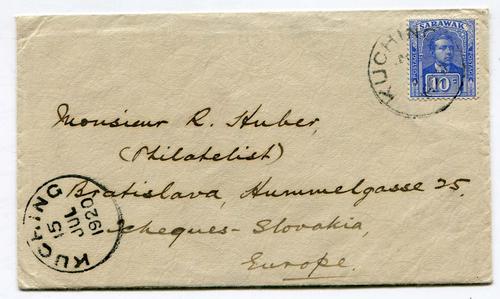 SARAWAK
POSTAGE POSTAGE
10 c
KUCHING
Monsieur R. Huber,
(Philatelist)
Bratislava, Hummelgasse 25.
Tcheques-Slovakia,
Europe.
KUCHING
15
JUL
1920